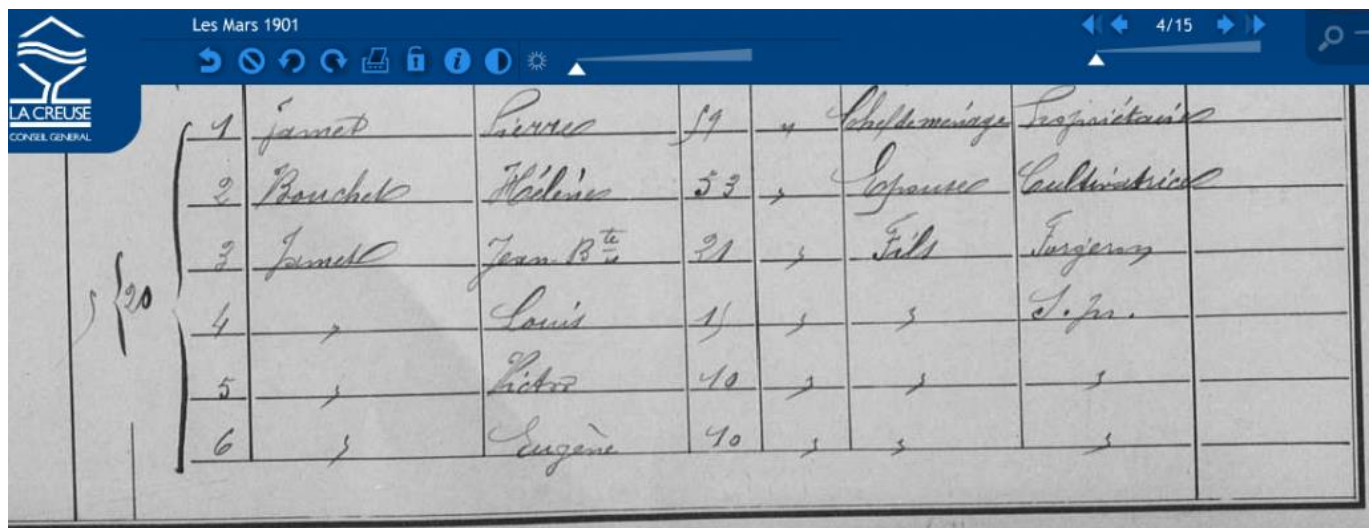 Les Mars 1901
4/15
LA CREUSE
CONSEIL GENERAL
1 Jamet Pierre 59 " Chef de ménage Propriétaire
2 Bouchet Hélène 53 " Epouse Cultivatrice
3 Jamet Jean Bte 21 " Fils Forgeron
20 4 " Louis 15 " " S. pr.
5 " Victor 10 " " "
6 " Eugène 10 " " "